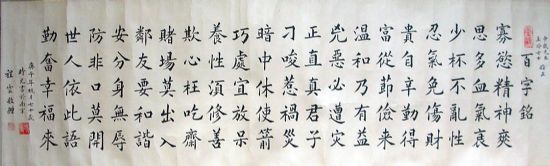 百字銘
寡慾精神爽
思多血氣衰
少杯不亂性
忍氣免傷財
貴自辛勤得
富從節儉來
温和有益
兇惡必遭災
正直真君子
刁唆惹禍災
暗中休使箭
巧處宜放呆
養性須修善
欺心枉吃齋
賭場莫出入
鄰友要和諧
安分身無辱
防非口莫開
世人依此語
勤奮幸福來